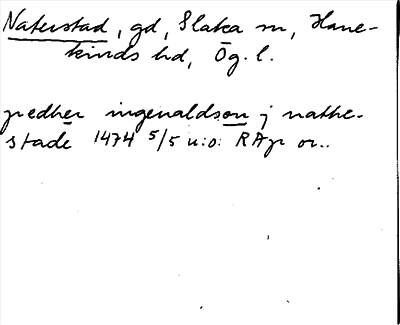 Naterstad, gd, Slaka sn, Hane-
kinds hd, Ög. l.
pedher ingenaldson j nathe-
stade 1474 5/5 u:o: RAp or..